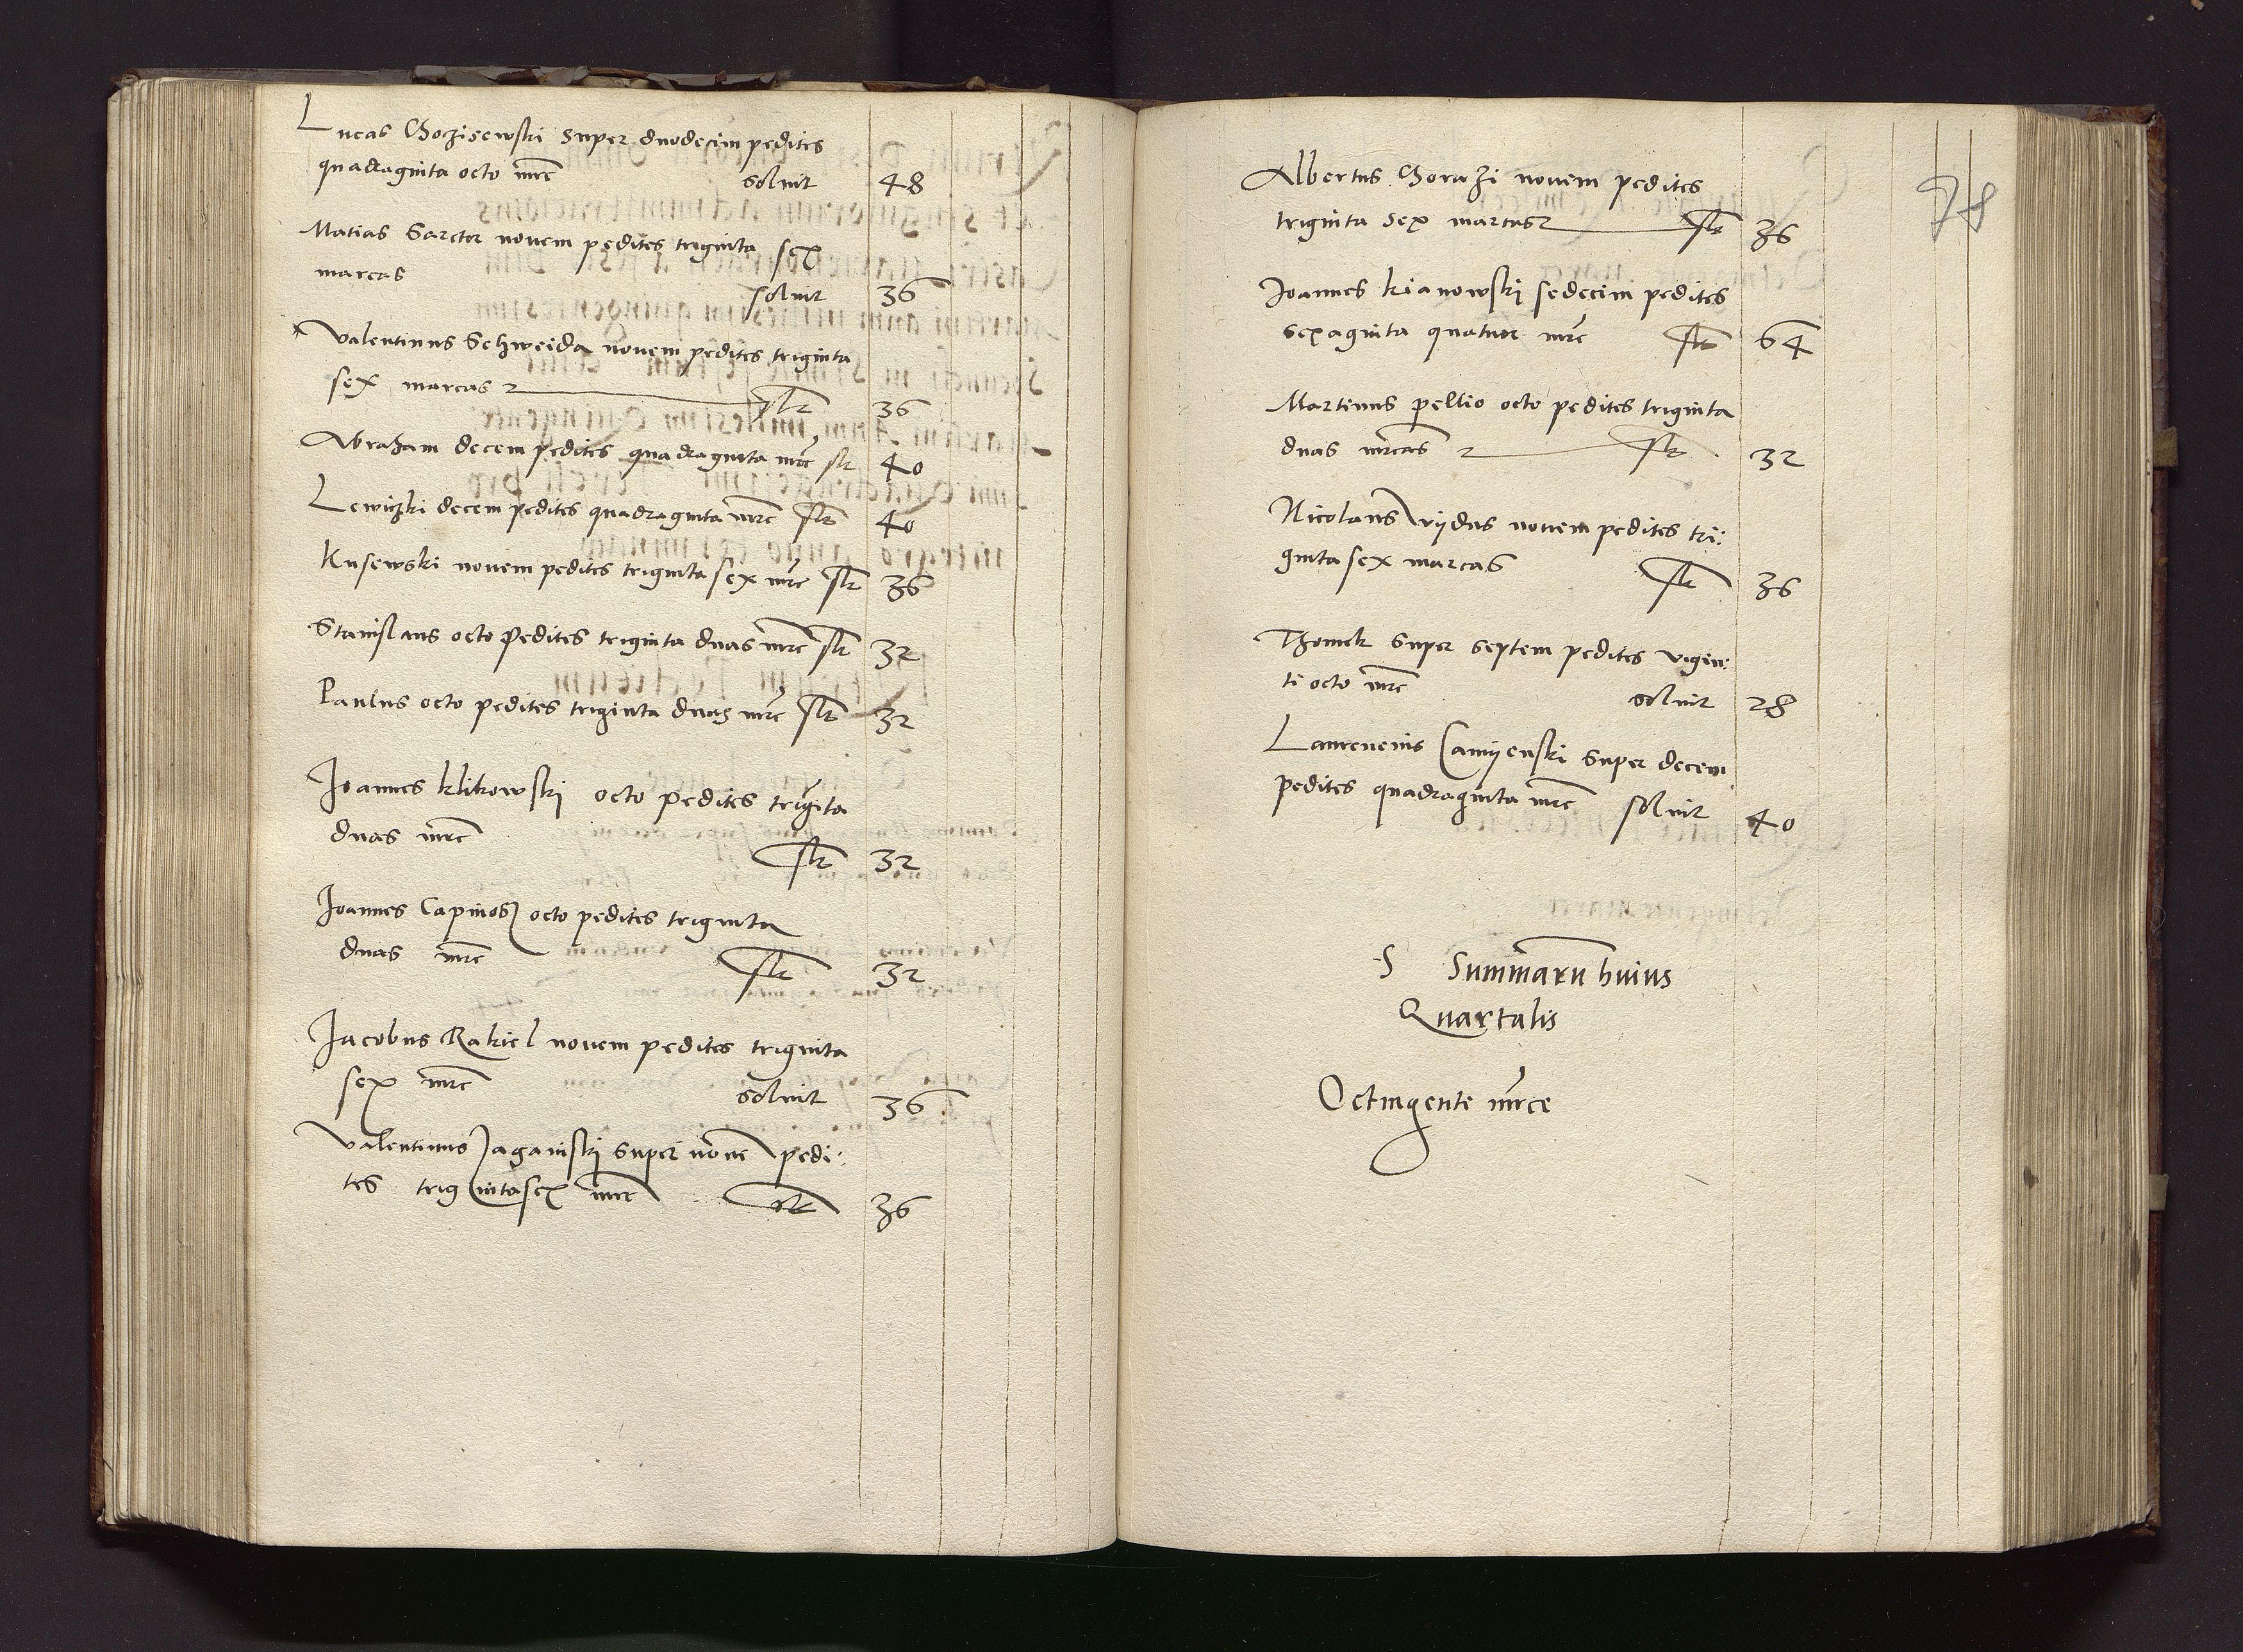 Lucas Chozisewski super duodecim pedites
quadraginta octo mrc solvit 48
Matias Sarctor novem pedites triginta sex
marcas solvit 36
Valentinus Schweida novem pedites triginta
sex marcas slt 36
Abraham decem pedites quadraginta mrc slt 40
Lewiczki decem pedites quadraginta mrc slt 40
Kusewski novem pedites triginta sex mrc slt 36
Stanislaus octo pedites triginta duas mrc slt 32
Paulus octo pedites triginta duas mrc slt 32
Joannes Klikowskj octo pedites trigita
duas mrc slt 32
Joannes Capinos octo pedites triginta
duas mrc slt 32
Jacobus Rakiel novem pedites triginta
sex mrc solvit 36
Valentinus Jaganiskj super nove pedi:
tes triginta sex mrc slt 36
78
Albertus Chorazi novem pedites
triginta sex marcas slt 36
Joannes Kianowskj sedecim pedites
sexaginta quatuor mrc slt 64
Martinus pellio octo pedites triginta
duas mrcas slt 32
Nicolaus novem pedites tri:
ginta sex marcas slt 36
Thomek super septem pedites vigin:
ti octo mrc solvit 28
Laurencius Camyenski super decem
pedites quadraginta mrc solvit 40
S Summaru huius
Quartalis
Octingente mrce